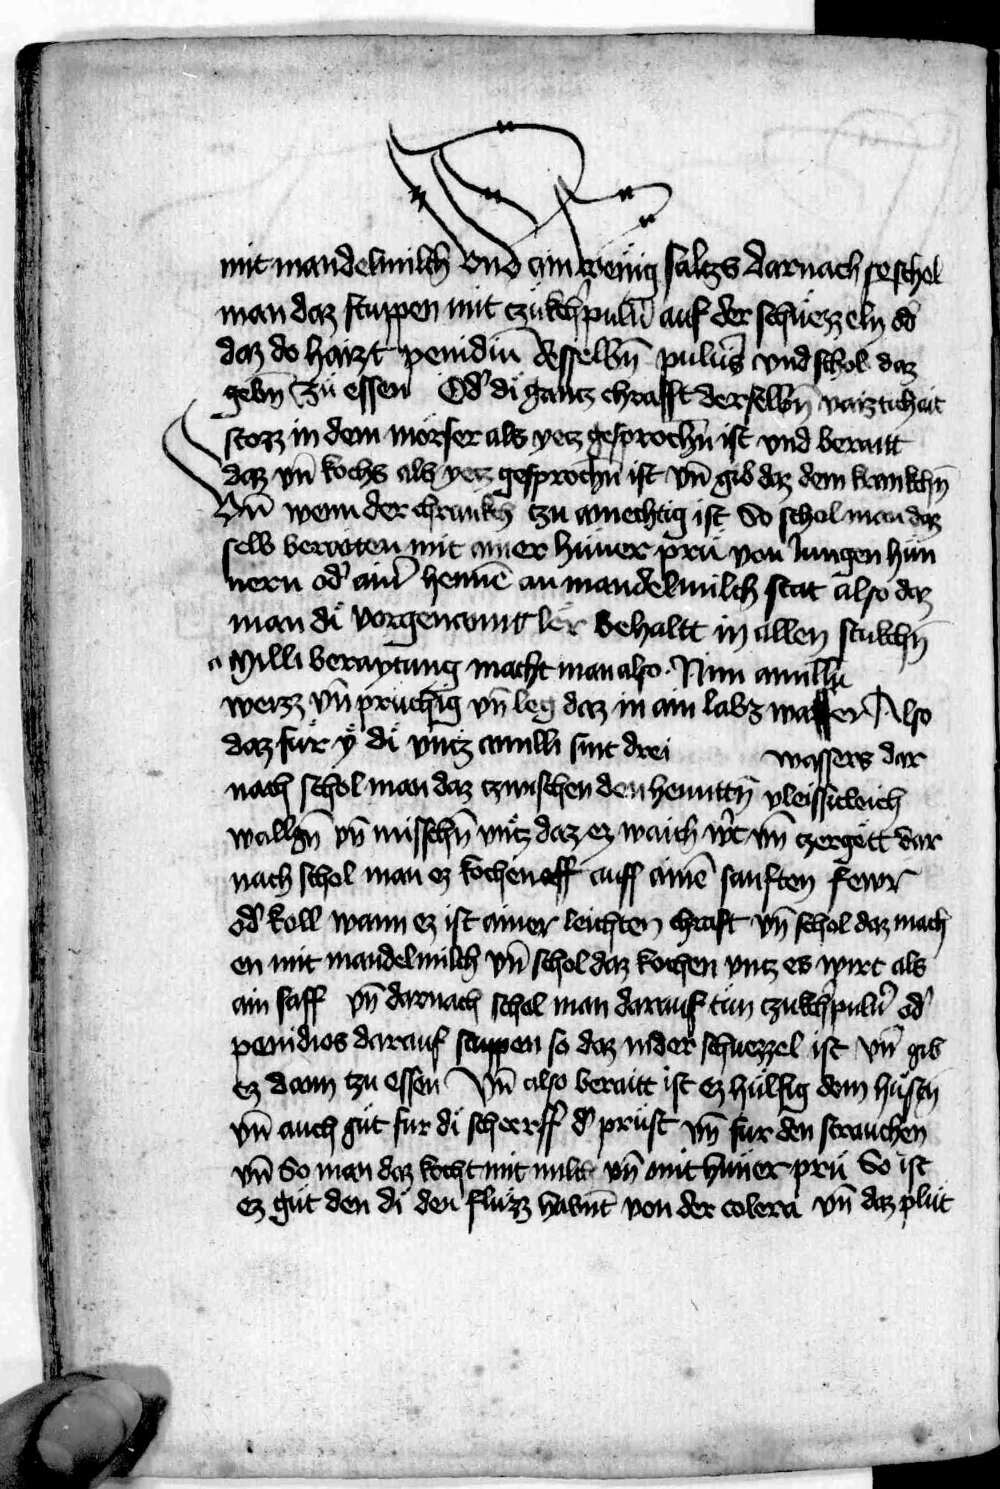 mit mandelmilch vnd ain wenig saltzs darnach so schol
man daz stuppen mit tzukch̓pulu̅ auf der schüezzeln od̓
daz do haizt penidiu̅ desselbn̅ pulu̓s vnd schol daz
gebn̅ Zu essen Od̓ di gantz chrafft derselbn̅ vaiztichait
stozz in dem mörser als yetz gesprochn̅ ist vnd beraitt
daz vn̅ kochs als yetz gesprochn̅ ist vn̅ gib daz dem krankchn̅
Vn̅ wenn der chrankch tzu amechtig ist So schol man daz
selb beraiten mit ainer hüner prü von Jungen hün
nern od̓ ain̓ henne̅ an mandelmilch stat also daz
man di vorgenantt ler behaltt in allen stukchn̅
Milli beraytung macht man also · Nim amillu̅
weizz vn̅ prüchig vn̅ leg daz in ain labs wasser Also
daz für ÿ di vntz amilli sint drei wassers dar
nach schol man daz tzwischen den henntn̅ vleissicleich
vn̅ misschn̅ vntz daz ez waich w̓t vn̅ tzergett dar
nach schol man ez kochen auff aime̅ sanften fewr
od̓ koll wann ez ist ainer leichten chraft vn̅ schol daz mach
en mit mandelmilch vn̅ schol daz kochen vntz es wirt als
ain saff vn̅ darnach schol man darauf tun tzukch̓pulu̓ od̓
penidios darauf stuppen so daz in der schuezzel ist vn̅ gib
ez dann tzu essen Vn̅ also beraitt ist ez hülfig dem hüstn̅
vn̅ auch güt für di scherff d̓ prüst vn̅ für den strauchen
vn̅ So man daz kocht mit milch vn̅ mit hüner prü So ist
ez güt den di den fluzz habn̅t von der colera vn̅ daz plüt